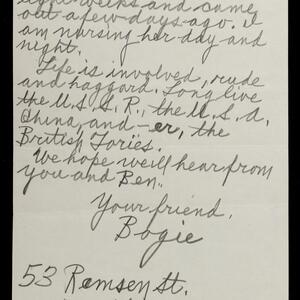 eight weeks and came
out a few days ago. I
am nursing her day and
night.
Life is involved, rude
and haggard. Long live
the U.S.S.R., the U.S.A.
China, and -er, the
British Tories.
We hope we'll hear from
you and Ben.
Your friend,
Bogie
53 Ramsey St.